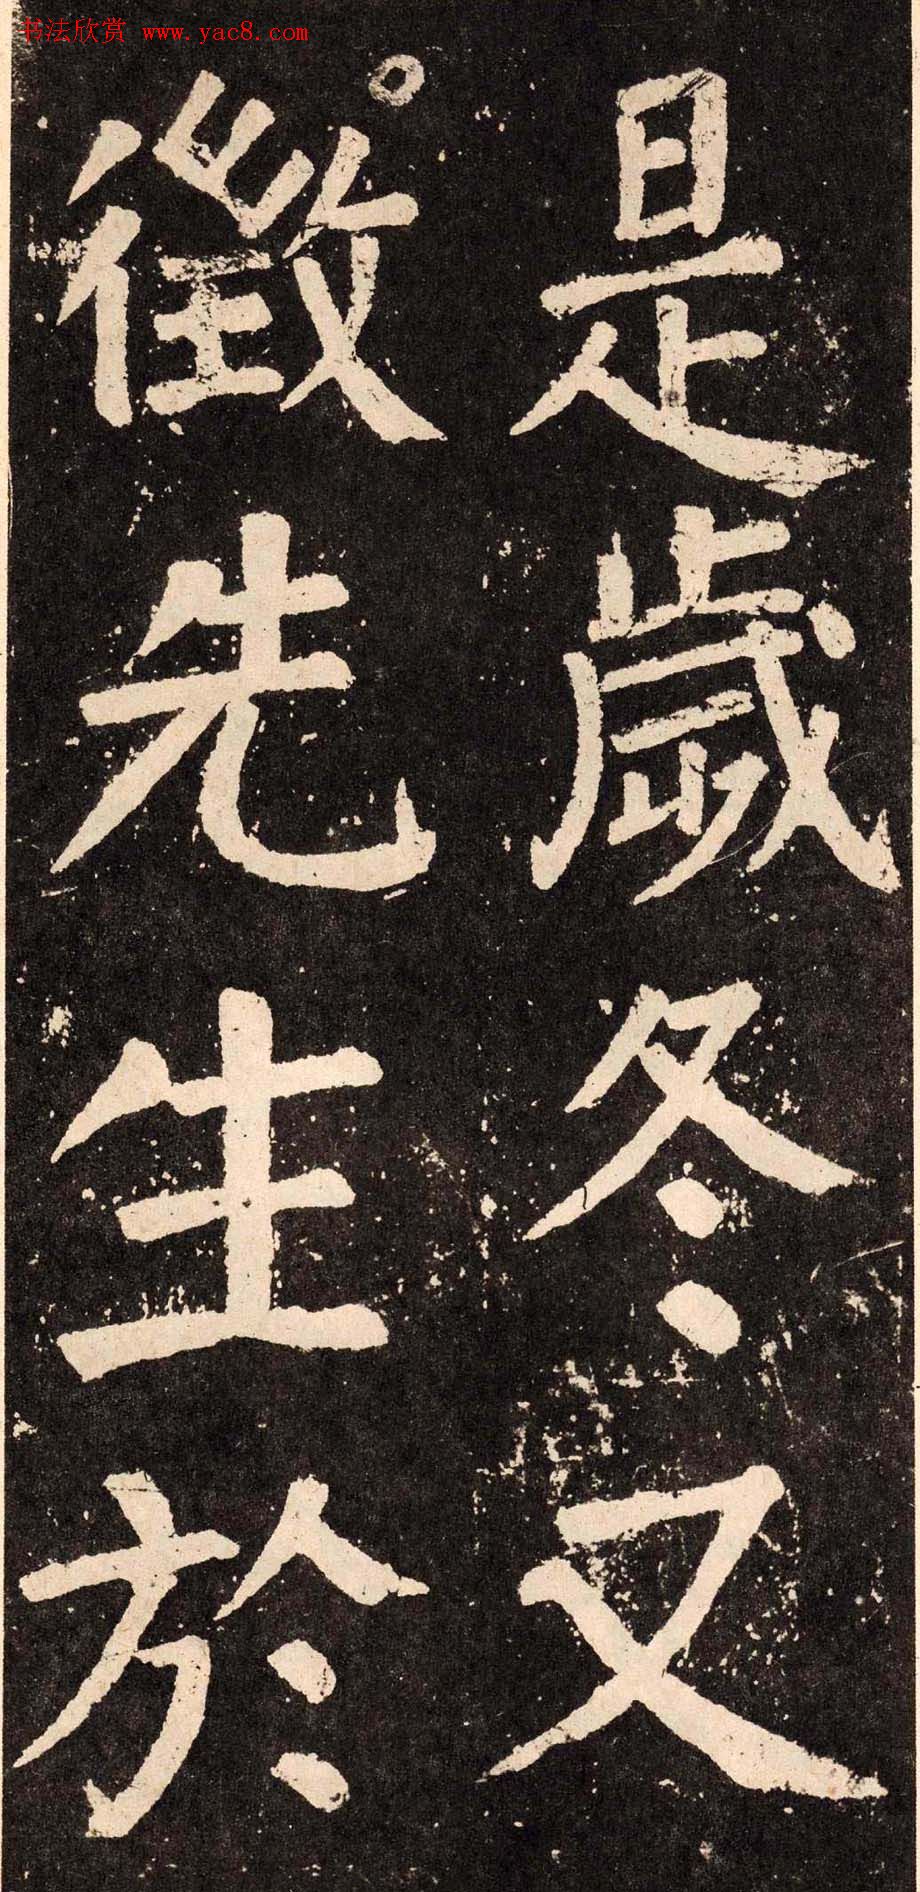 书法欣赏 www.yac8.com
是歲冬又
徵先生於